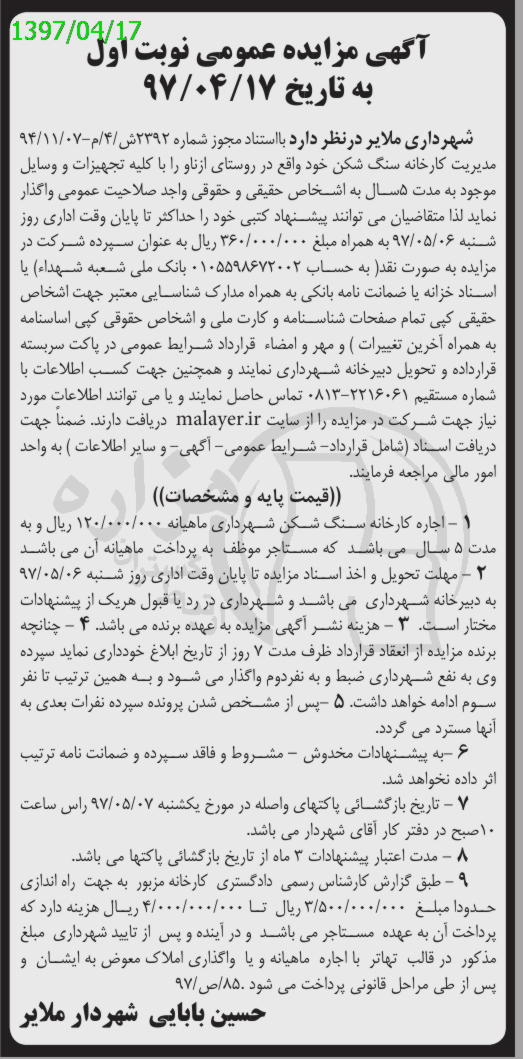 1397/04/17
آگهی مزایده عمومی نوبت اول
به تاریخ ۹۷/۰۴/۱۷
شهرداری ملایر درنظر دارد بااستناد مجوز شماره ۲۳۹۲ش/۴/م-۹۴/۱۱/۰۷
مدیریت کارخانه سنگ شکن خود واقع در روستای ازناو را با کلیه تجهیزات و وسایل
موجود به مدت ۵سال به اشخاص حقیقی و حقوقی واجد صلاحیت عمومی واگذار
نماید لذا متقاضیان می توانند پیشنهاد کتبی خود را حداکثر تا پایان وقت اداری روز
شنبه ۹۷/۰۵/۰۶ به همراه مبلغ ۳۶۰/۰۰۰/۰۰۰ ریال به عنوان سپرده شرکت در
مزایده به صورت نقد( به حساب ۰۱۰۵۵۹۸۶۷۲۰۰۲ بانک ملی شعبه شهداء) یا
اسناد خزانه یا ضمانت نامه بانکی به همراه مدارک شناسایی معتبر جهت اشخاص
حقیقی کپی تمام صفحات شناسنامه و کارت ملی و اشخاص حقوقی کپی اساسنامه
به همراه آخرین تغییرات ) و مهر و امضاء قرارداد شرایط عمومی در پاکت سربسته
قرارداده و تحویل دبیرخانه شهرداری نمایند و همچنین جهت کسب اطلاعات با
شماره مستقیم ۲۲۱۶۰۶۱-۰۸۱۳ تماس حاصل نمایند و یا می توانند اطلاعات مورد
نیاز جهت شرکت در مزایده را از سایت malayer.ir دریافت دارند. ضمناً جهت
دریافت اسناد (شامل قرارداد- شرایط عمومی- آگهی- و سایر اطلاعات ) به واحد
امور مالی مراجعه فرمایند.
((قیمت پایه و مشخصات))
۱ - اجاره کارخانه سنگ شکن شهرداری ماهیانه ۱۲۰/۰۰۰/۰۰۰ ریال و به
مدت ۵ سال می باشد که مستاجر موظف به پرداخت ماهیانه آن می باشد
۲ - مهلت تحویل و اخذ اسناد مزایده تا پایان وقت اداری روز شنبه ۹۷/۰۵/۰۶
به دبیرخانه شهرداری می باشد و شهرداری در رد یا قبول هریک از پیشنهادات
مختار است. ۳ - هزینه نشر آگهی مزایده به عهده برنده می باشد. ۴ - چنانچه
برنده مزایده از انعقاد قرارداد ظرف مدت ۷ روز از تاریخ ابلاغ خودداری نماید سپرده
وی به نفع شهرداری ضبط و به نفردوم واگذار می شود و به همین ترتیب تا نفر
سوم ادامه خواهد داشت. ۵ -پس از مشخص شدن پرونده سپرده نفرات بعدی به
آنها مسترد می گردد.
۶ -به پیشنهادات مخدوش - مشروط و فاقد سپرده و ضمانت نامه ترتیب
اثر داده نخواهد شد.
۷ - تاریخ بازگشائی پاکتهای واصله در مورخ یکشنبه ۹۷/۰۵/۰۷ راس ساعت
۱۰صبح در دفتر کار آقای شهردار می باشد.
۸ - مدت اعتبار پیشنهادات ۳ ماه از تاریخ بازگشائی پاکتها می باشد.
۹ - طبق گزارش کارشناس رسمی دادگستری کارخانه مزبور به جهت راه اندازی
حدودا مبلغ ۳/۵۰۰/۰۰۰/۰۰۰ ریال تا ۴/۰۰۰/۰۰۰/۰۰۰ ریال هزینه دارد که
پرداخت آن به عهده مستاجر می باشد و در آینده و پس از تایید شهرداری مبلغ
مذکور در قالب تهاتر با اجاره ماهیانه و یا واگذاری املاک معوض به ایشان و
پس از طی مراحل قانونی پرداخت می شود .۸۵/ص/۹۷
حسین بابایی شهردار ملایر